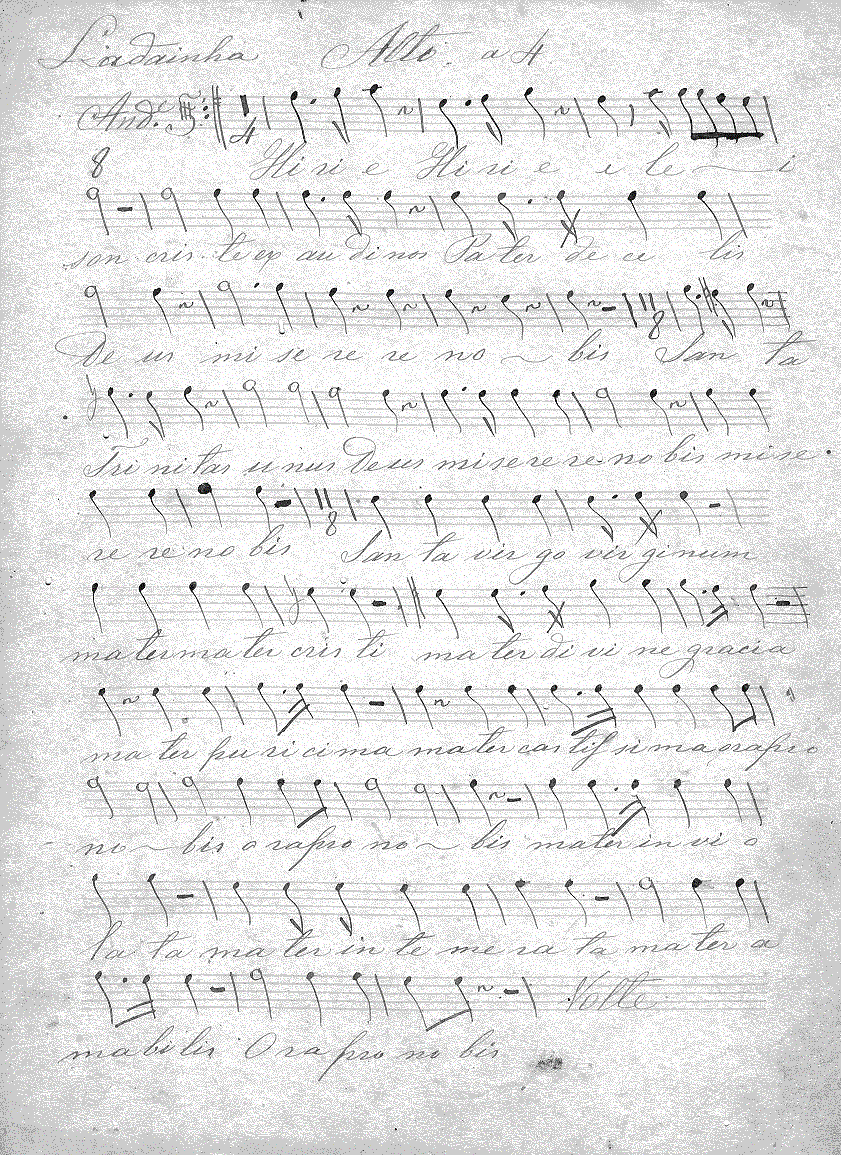 Ladainha Alto. a 4
And.e 4
8
Hi ri e Hi ri e e le i
son cris te ex au di nos Pa ter de ce lis
8
De us mi se re re no bis San ta
Tri ni tas u nus Deus mi se re re no bis mi se
8
re re no bis San ta vir go vir ginum
ma ter ma ter cris ti ma ter di vi ne gracia
ma ter pu ri ci ma ma ter cas tis si ma ora pro
no bis o ra pro no bis mater in vi o
la ta ma ter in te me ra ta ma ter a
Volte
ma bi lis Ora pro no bis